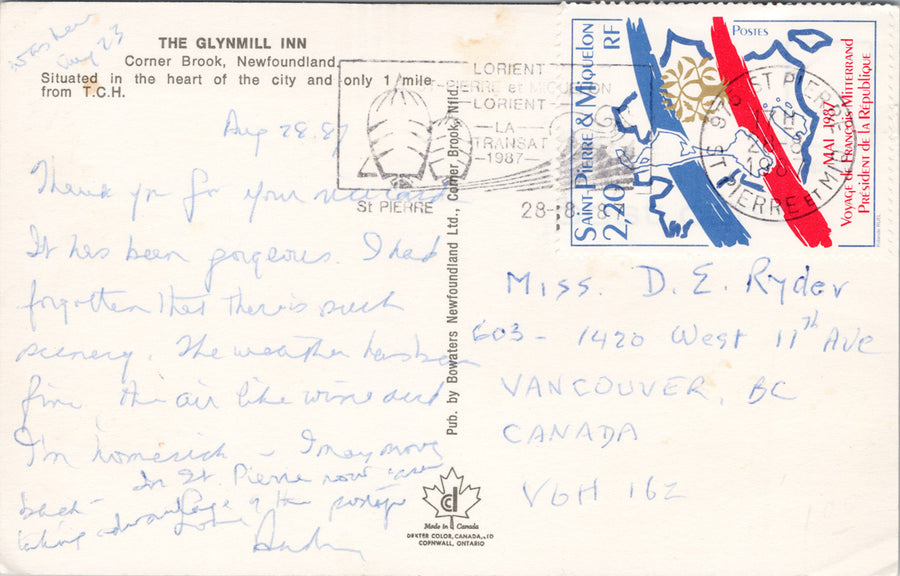 was here
Aug 23
THE GLYNMILL INN
Corner Brook, Newfoundland.
Situated in the heart of the city and only 1 mile
from T.C.H.
Aug 28.87
Thank you for your
It has been gorgeous. I had
forgotten that there is such
scenery. The weather has been
fine the air like wine and
I'm homesick - I may move
back - In St. Pierre now
taking advantage of the postage
Love
Pub. by Bowaters Newfoundland Ltd., Corner Brook, Nfld.
LORIENT
ST-PIERRE et MIQUELON
LORIENT
LA
TRANSAT
1987
St PIERRE
28-8-8
SAINT-PIERRE & MIQUELON
2,20
RF
POSTES
MAI 1987
VOYAGE de FRANÇOIS MITTERRAND
PRÉSIDENT de la RÉPUBLIQUE
975 ST PIERRE
17H
28-8
19
ST PIERRE ET M
Miss. D. E. Ryder
603 - 1420 West 11th Ave
VANCOUVER, BC
CANADA
V6H 1L2
Made in Canada
DEXTER COLOR, CANADA, LTD
CORNWALL, ONTARIO